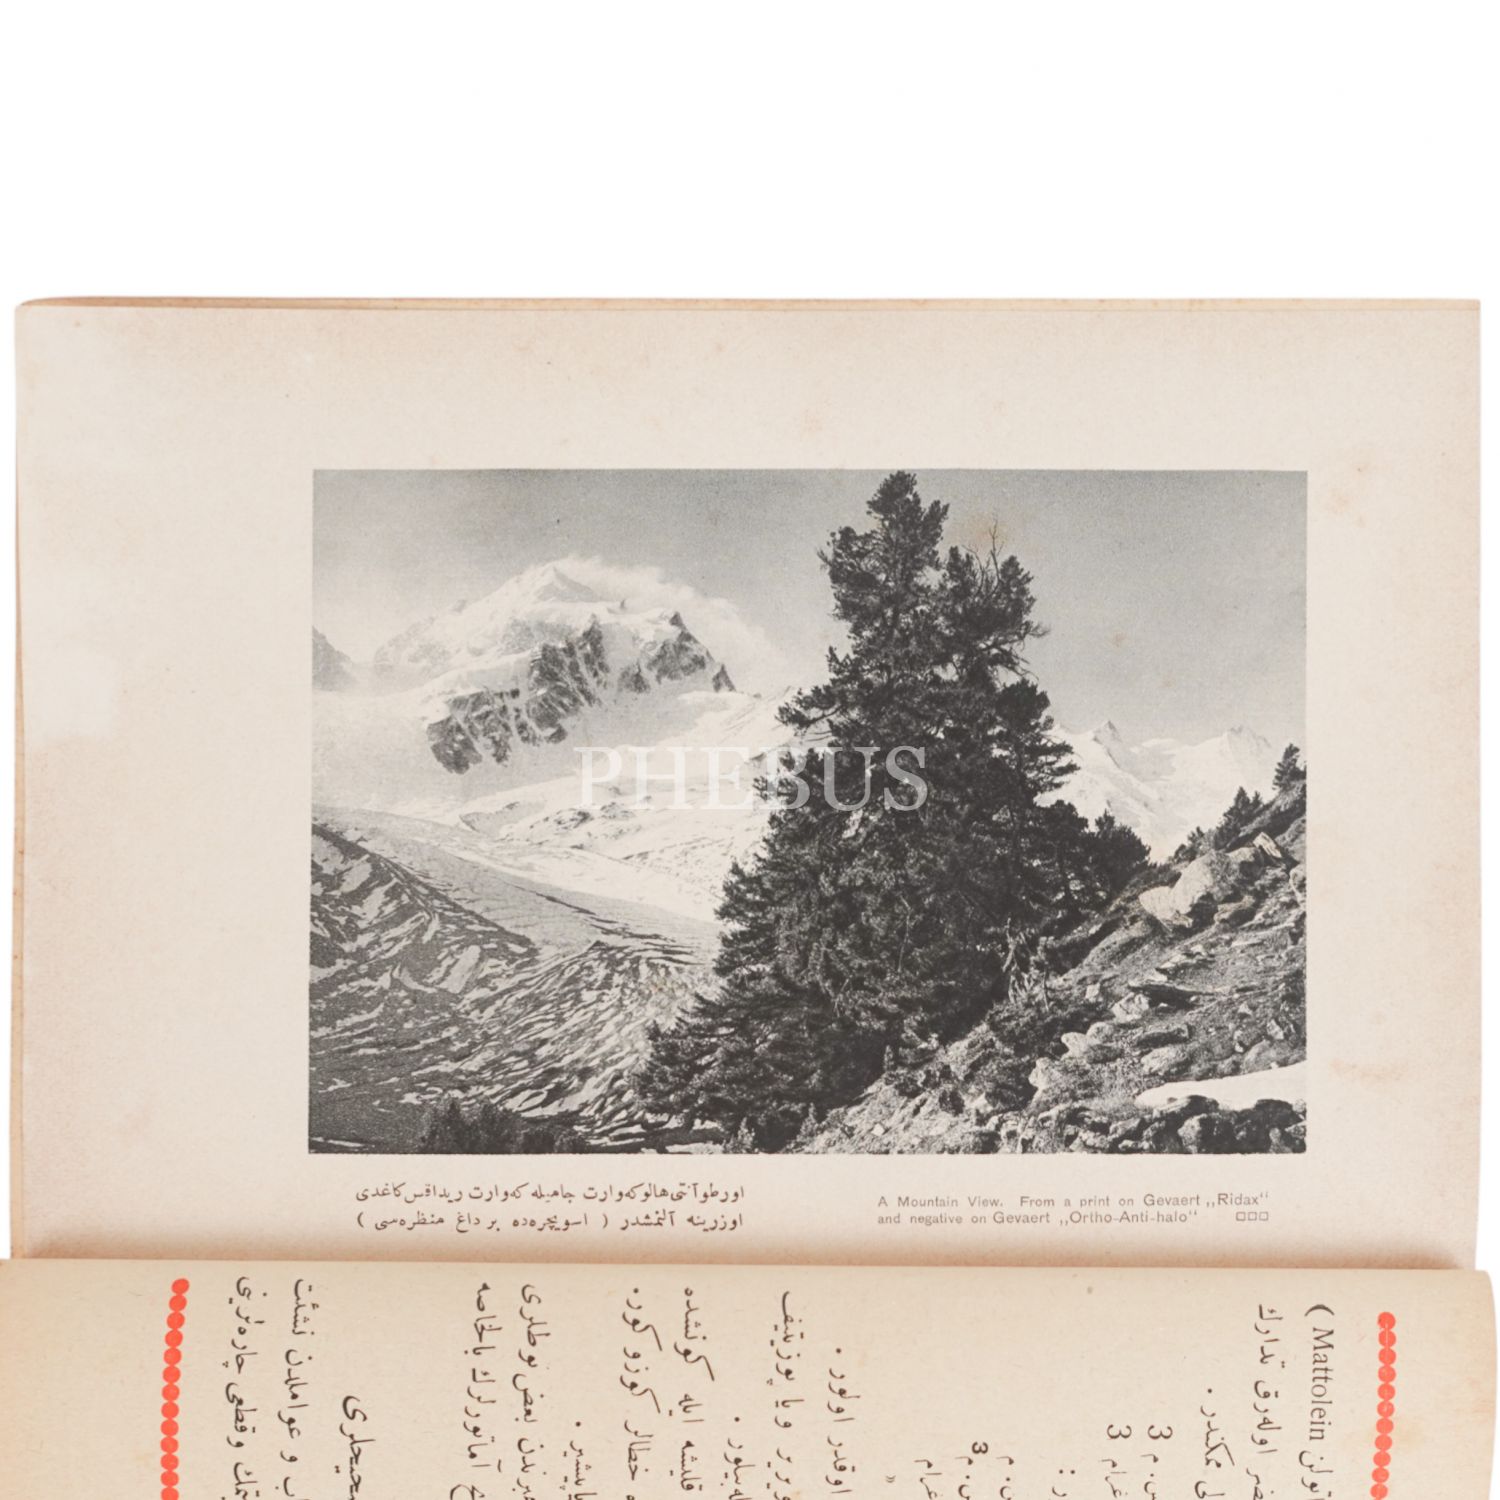 PHEBUS
اورطو آنتی هالو كه‌وارت جامیله كه‌وارت ریداقس كاغدی
اوزرینه آلنمشدر ( اسویچره‌ده بر داغ منظره‌سی )
A Mountain View. From a print on Gevaert ,,Ridax“
and negative on Gevaert ,,Ortho-Anti-halo“ □□□
( Mattolein
اوله‌رق تدارك
ممكندر .
3
غرام 3
3
غرام
اوقدر اولور .
ویا پوزیتیف
قلیشه ایله كونشده
خطالر كوزوكور.
بعض نوطلری
آماتورلرك بالخاصه
و عواملدن نشئت
وقطعی چاره‌لرینی